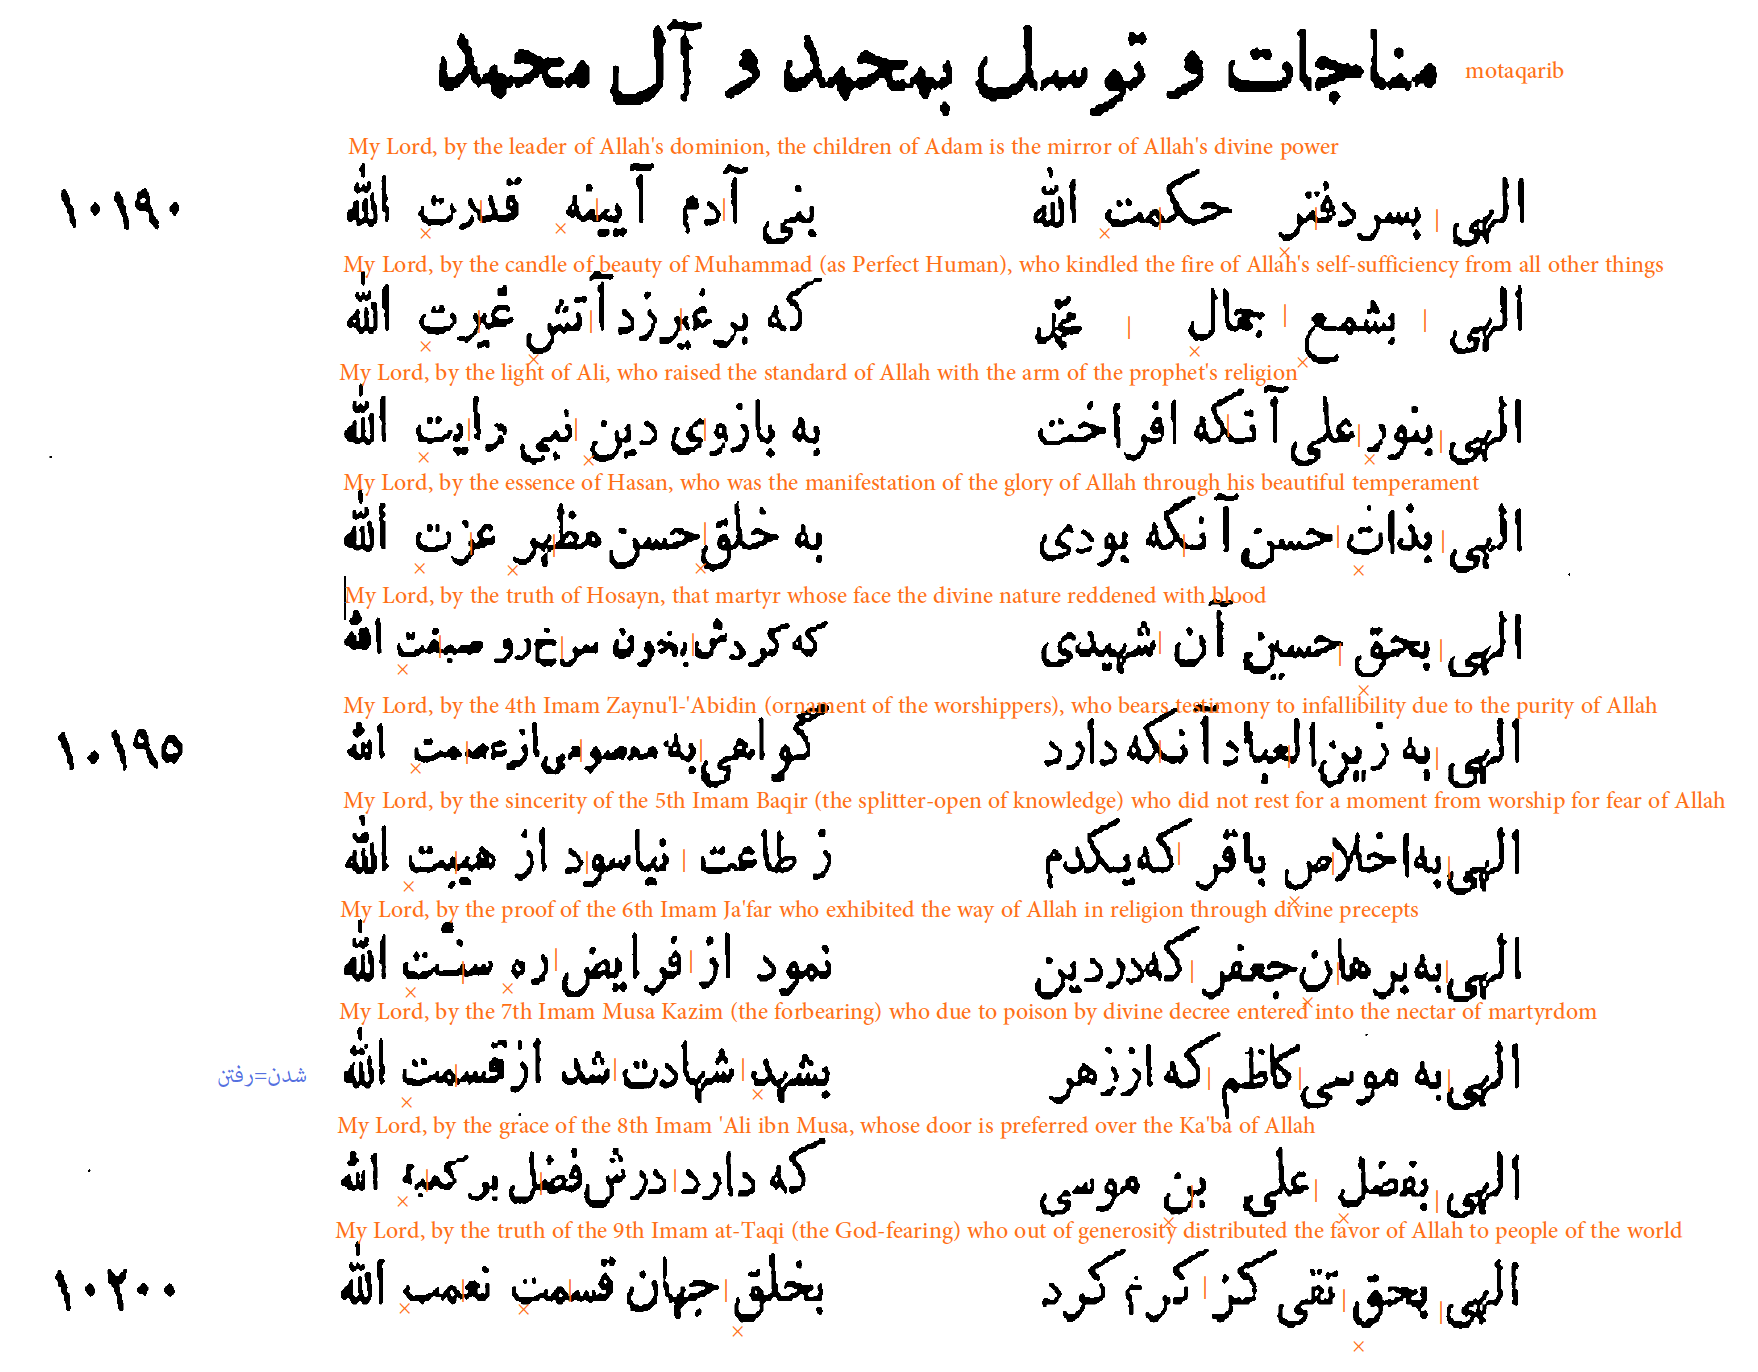 مناجات و توسل بمحمد و آل محمد motaqarib
My Lord, by the leader of Allah's dominion, the children of Adam is the mirror of Allah's divine power
الهی بسر دفتر حکمت الله بنی آدم آیینه قدرت الله ۱۰۱۹۰
My Lord, by the candle of beauty of Muhammad (as Perfect Human), who kindled the fire of Allah's self-sufficiency from all other things
الهی بشمع جمال محمد که بر غیر زد آتش غیرت الله
My Lord, by the light of Ali, who raised the standard of Allah with the arm of the prophet's religion
الهی بنور علی آنکه افراخت به بازوی دین نبی رایت الله
My Lord, by the essence of Hasan, who was the manifestation of the glory of Allah through his beautiful temperament
الهی بذات حسن آنکه بودی به خلق حسن مظهر عزت الله
My Lord, by the truth of Hosayn, that martyr whose face the divine nature reddened with blood
الهی بحق حسین آن شهیدی که کردش بخون سرخ رو صبغت الله
My Lord, by the 4th Imam Zaynu'l-'Abidin (ornament of the worshippers), who bears testimony to infallibility due to the purity of Allah
الهی به زین العباد آنکه دارد گواهی به معصومی از عصمت الله ۱۰۱۹۵
My Lord, by the sincerity of the 5th Imam Baqir (the splitter-open of knowledge) who did not rest for a moment from worship for fear of Allah
الهی به اخلاص باقر که یکدم ز طاعت نیاسود از هیبت الله
My Lord, by the proof of the 6th Imam Ja'far who exhibited the way of Allah in religion through divine precepts
الهی به برهان جعفر که در دین نمود از فرایض ره سنّت الله
My Lord, by the 7th Imam Musa Kazim (the forbearing) who due to poison by divine decree entered into the nectar of martyrdom
الهی به موسی کاظم که از زهر بشهد شهادت شد از قسمت الله شدن=رفتن
My Lord, by the grace of the 8th Imam 'Ali ibn Musa, whose door is preferred over the Ka'ba of Allah
الهی بفضل علی بن موسی که دارد درش فضل بر کعبهٔ الله
My Lord, by the truth of the 9th Imam at-Taqi (the God-fearing) who out of generosity distributed the favor of Allah to people of the world
الهی بحق تقی کز کرم کرد بخلق جهان قسمت نعمت الله ۱۰۲۰۰